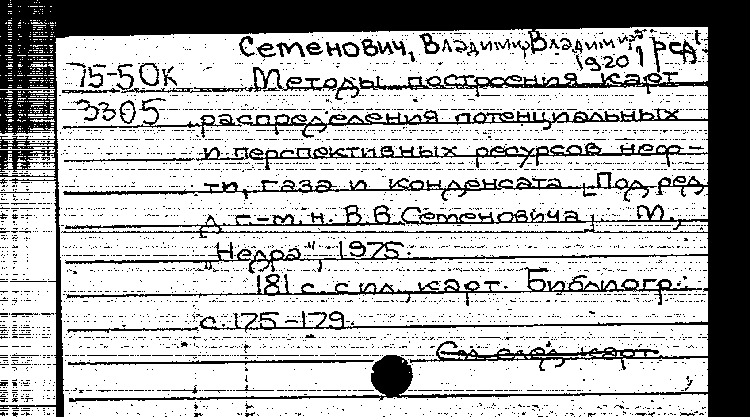 Семенович, Владимир Владимир
1920
75-50к Методы построения карт
3305 распределения потенциальных
и перспективных ресурсов неф-
ти, газа и конденсата [Под ред.
д. г.-м. н. В. В. Семеновича]. М.,
"Недра", 1975.
181 с. с ил., карт. Библиогр.:
с. 175-179.
См. след. карт.